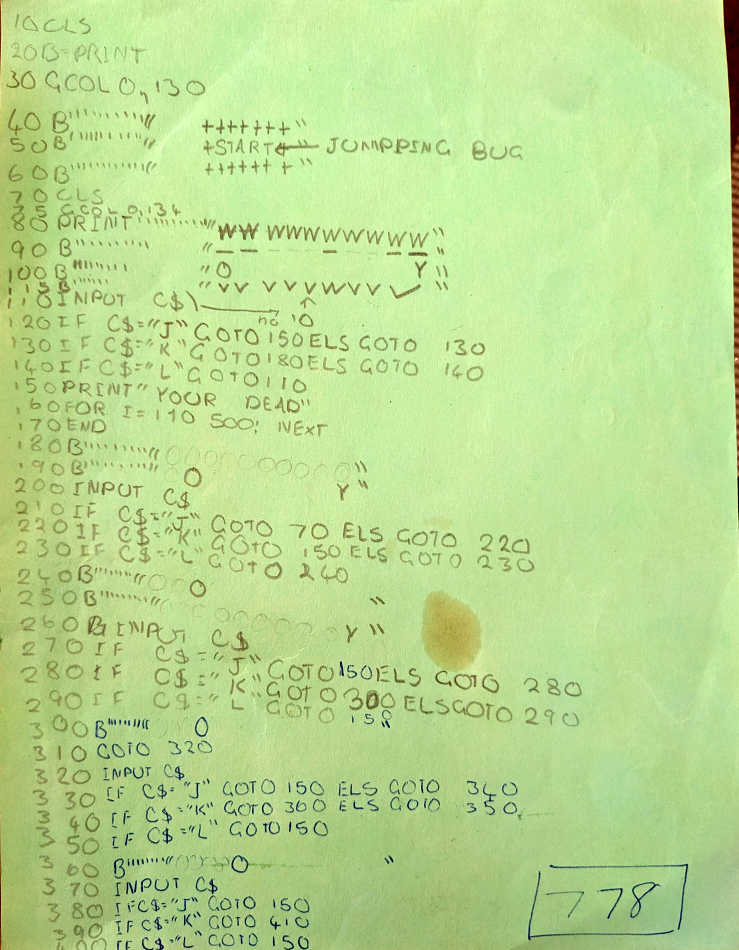 10 CLS
20 B=PRINT
30 GCOL 0,130
40 B''''''''" +++++++"
50 B''''''''" +START+ JUMPPING BUG
60 B''''''''" ++++++ +"
70 CLS
75 GCOL 0,134
80 PRINT''''''''" WW WWWWWWWWW"
90 B'''''''' "_ _ _ _ _"
100 B'''''' "O Y"
115 B'''''' "VV VVWVV
110 INPUT C$
no 'O
120 IF C$="J" GOTO 150 ELS GOTO 130
130 IF C$="K" GOTO 180 ELS GOTO 140
140 IF C$="L" GOTO 110
150 PRINT" YOUR DEAD"
160 FOR I= 1 TO 500: NEXT
170 END
180 B''''''''"OOOOOOOOO"
190 B''''''''" O Y"
200 INPUT C$
210 IF C$="J" GOTO 70 ELS GOTO 220
220 IF C$="K" GOTO 150 ELS GOTO 230
230 IF C$="L" GOTO 240
240 B''''''"OO O "
250 B''''''"OOOOOOO Y"
260 INPUT C$
270 IF C$="J" GOTO 150 ELS GOTO 280
280 IF C$="K" GOTO 300 ELS GOTO 290
290 IF C$="L GOTO 150
300 B''''''''" O
310 GOTO 320
320 INPUT C$
330 IF C$="J" GOTO 150 ELS GOTO 340
340 IF C$="K" GOTO 360 ELS GOTO 350
350 IF C$="L" GOTO 150
360 B''''''''"OOOOO "
370 INPUT C$
380 IFC$="J" GOTO 150
390 IF C$="K" GOTO 410
400 IF C$="L" GOTO 150
778